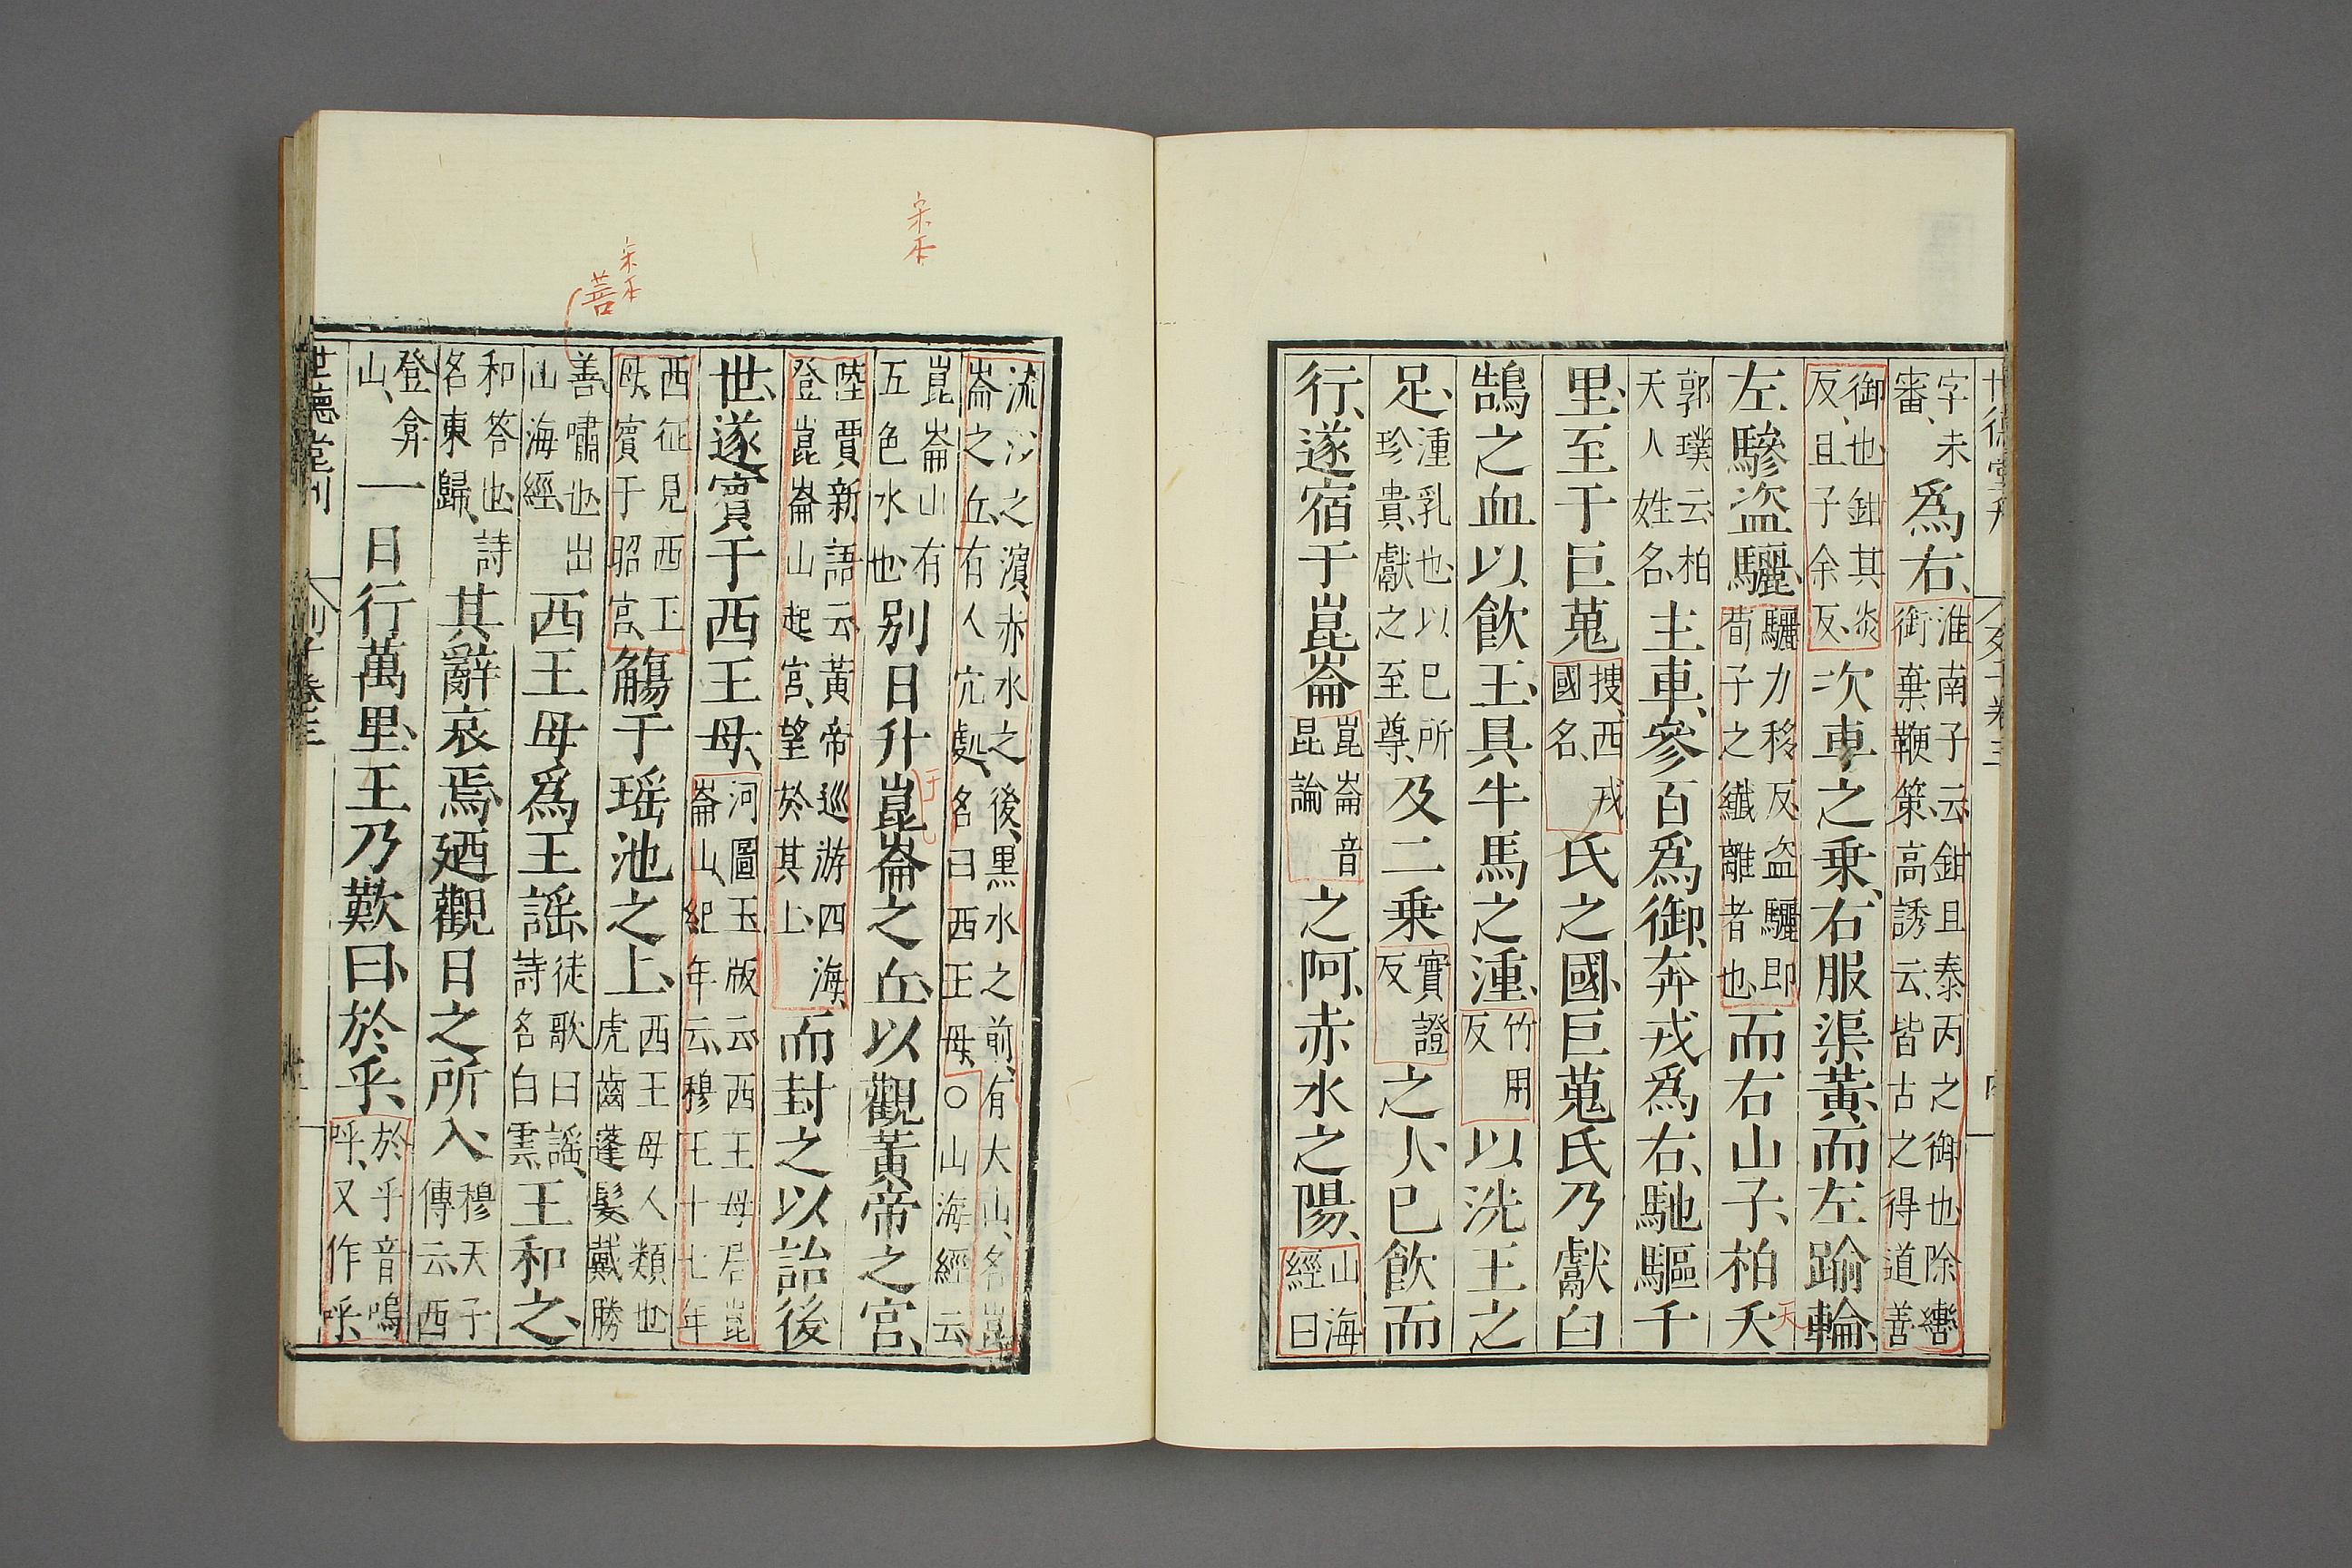 世德堂刊　列子卷三
字未審、爲右、淮南子云鉗且泰丙之御也除轡銜棄鞭策、高誘云、皆古之得道善
御也鉗其炎反、且子余反、次車之乗、右服渠黃、而左踰輪、
左驂盗驪、驪力移反盗驪即荀子之纎離者也、而右山子、柏夭
郭璞云柏天人姓名、主車、參百爲御、奔戎爲右、馳驅千
里、至于巨蒐捜、西戎國名、氏之國、巨蒐氏乃獻白
鵠之血以飲王、具牛馬之湩、竹用反以洗王之
足、湩乳也以巳所珍貴、獻之至尊、及二乗實證反之人、巳飲而
行、遂宿于崑崙崑崙音昆論之阿、赤水之陽、山海經曰
宋本
流沙之濵、赤水之後、黒水之前、有大山、名崑
崙之丘、有人穴處、名曰西王母、○山海經云
崑崙山有五色水也、别日升崑崙之丘、以觀黃帝之宮、
于
陸賈新語云、黃帝巡游四海、登崑崙山起宮、望於其上、而封之以詒後
世、遂賓于西王母、河圖玉版云、西王母居崑崙山、紀年云、穆王十七年
宋本
善
西征見西王母、賓于昭宮、觴于瑶池之上、西王母人類也虎齒蓬髮戴勝
善嘯也出山海經、西王母爲王謡、徒歌曰謡、詩名白雲、王和之、
和答也、詩名東歸、其辭哀焉、廼觀日之所入、穆天子傳云、西
登弇山、一日行萬里、王乃歎曰、於乎、於乎音嗚呼、又作呼、
世德堂刊　列子卷三